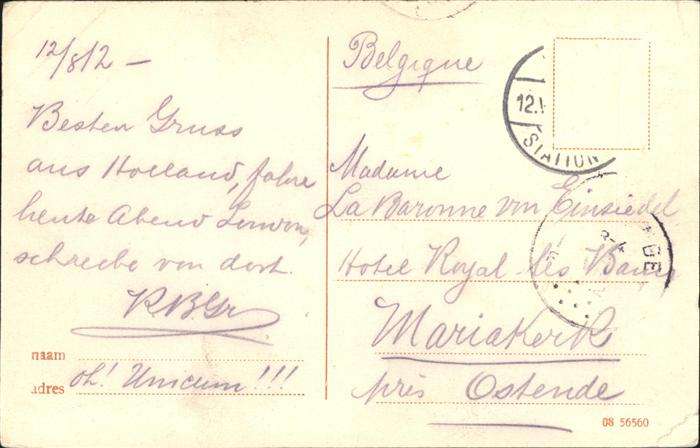 12/8/12 –
Besten Gruss
aus Holland, fahre
heute Abend London,
schreibe von dort.
naam
adres oh! Unicum!!!
Belgique
12.
STATION
Madame
La Baronne von Einsiedel
Hotel Royal lés Bains
DE
Mariakerk
près Ostende
08 56560